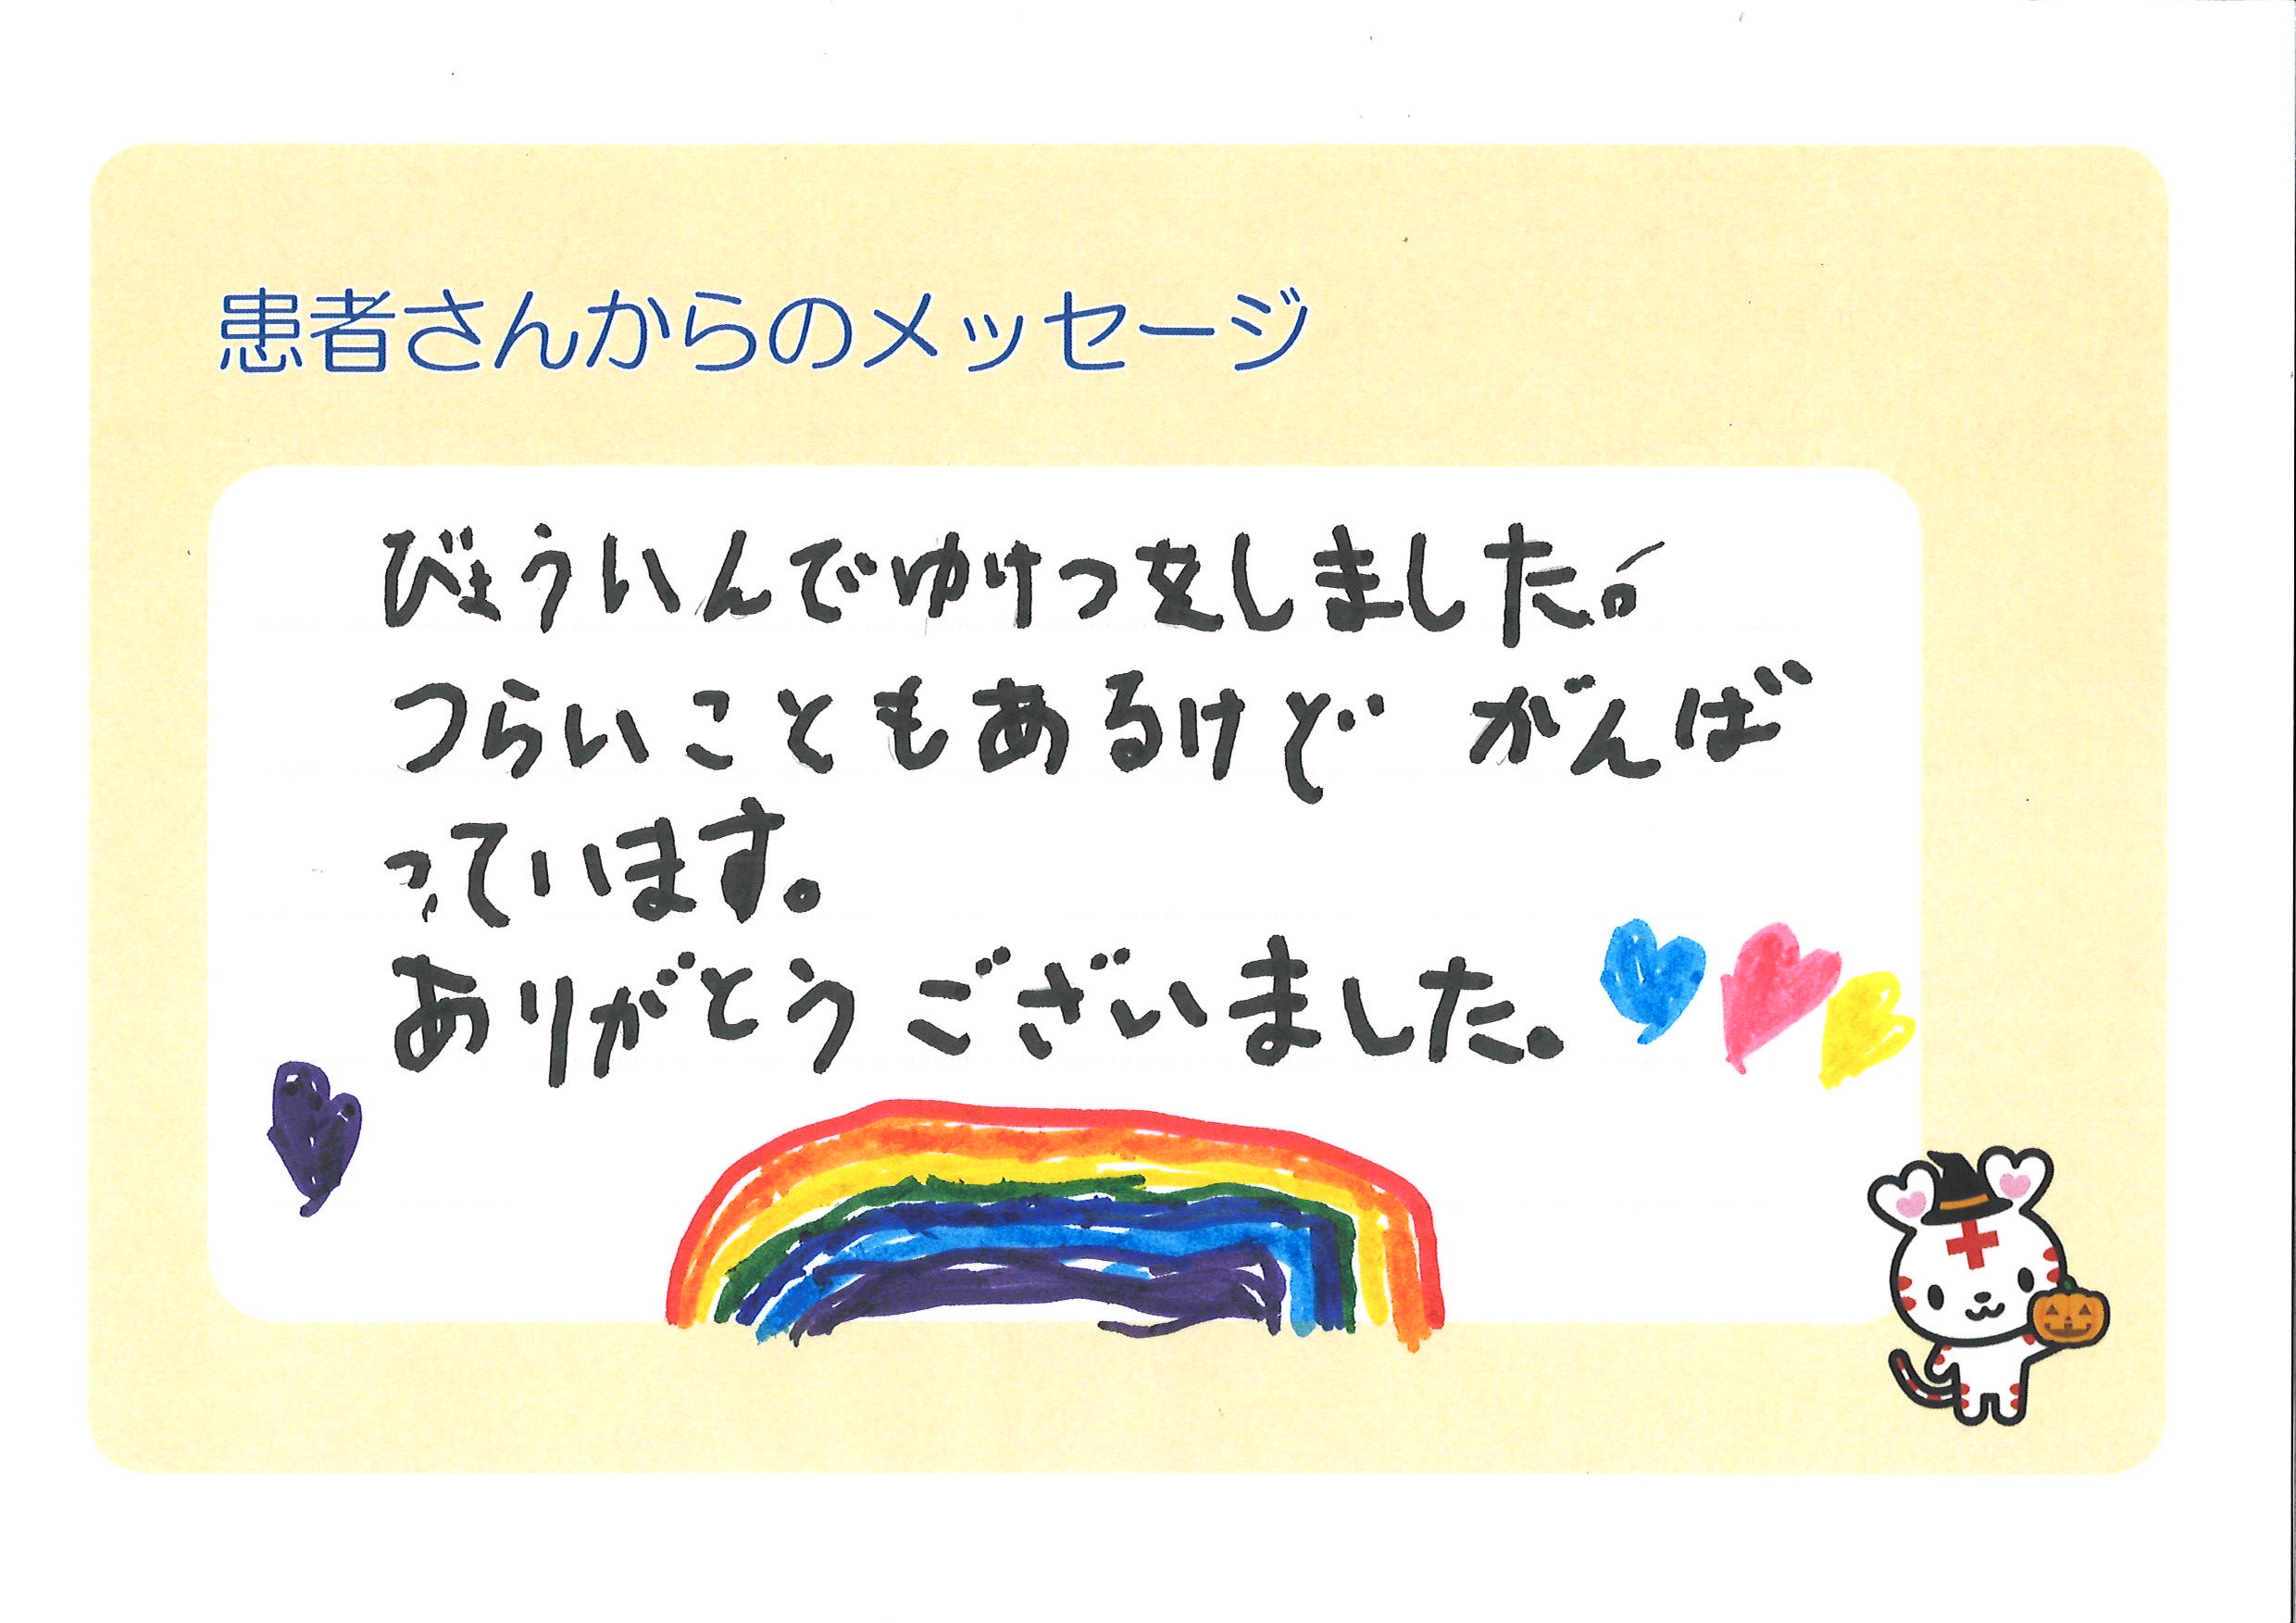 患者さんからのメッセージ
びょういんでゆけつをしました。
つらいこともあるけど がんば
っています。
ありがとうございました。